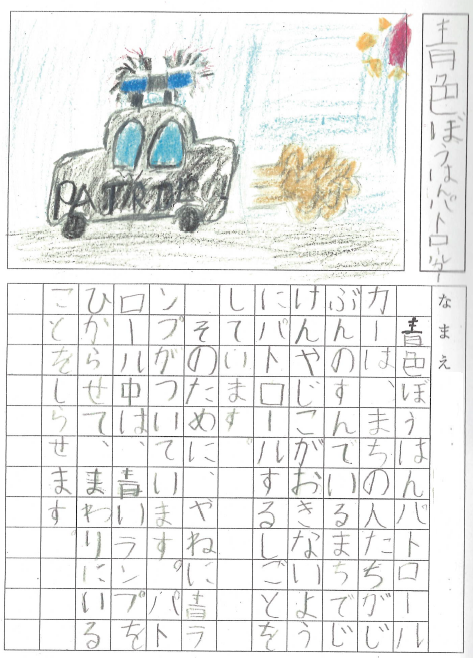 青色ぼうはんパトロールカー
なまえ
青色ぼうはんパトロール
カーは、まちの人たちがじ
ぶんのすんでいるまちでじ
けんやじこがおきないよう
にパトロールするしごとを
しています。
そのために、やねに青ラ
ンプがついています。パト
ロール中は、青いランプを
ひからせて、まわりにいる
ことをしらせます